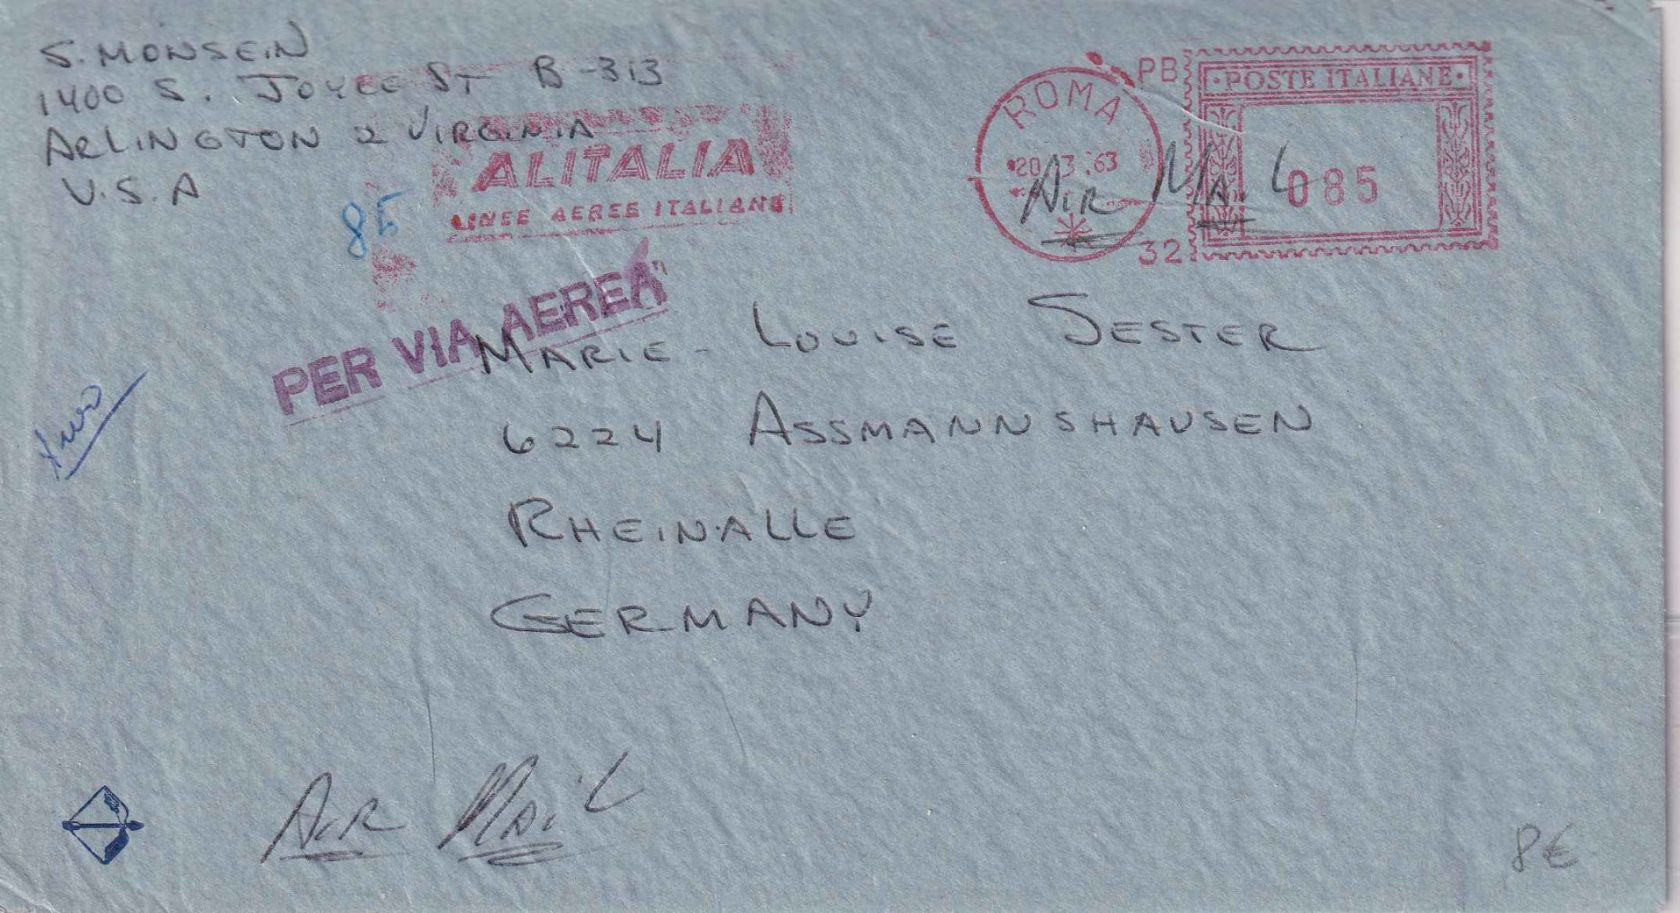 S. MONSEIN
1400 S. JOYCE ST B-313
ARLINGTON 2 VIRGINIA
U.S.A
85
ALITALIA
LINEE AEREE ITALIANE
ROMA
20 .3 .63
PB
32
POSTE ITALIANE
085
AIR MAIL
PER VIA AEREA
MARIE-LOUISE JESTER
6224 ASSMANNSHAUSEN
RHEINALLE
GERMANY
AIR MAIL
8€